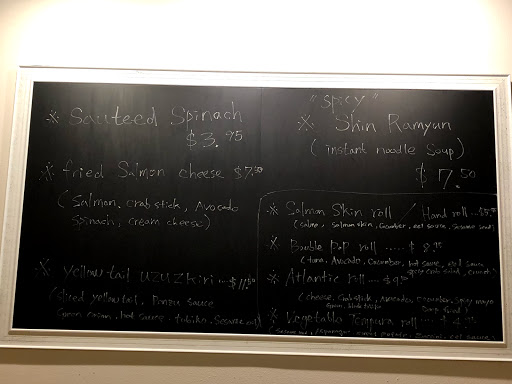 ※ Sauteed Spinach
$3.95
※ fried Salmon cheese $7.50
(Salmon, crab stick, Avocado
spinach, cream cheese)
※ yellow tail uzuzkiri ... $11.50
(sliced yellow tail, Ponzu sauce
green onion, hot sauce, tobiko, sesame oil)
"spicy"
※ Shin Ramyun
(instant noodle soup)
$7.50
※ Salmon Skin roll / Hand roll
(salmon skin, cucumber, eel sauce, sesame seed)
※ Double Pop roll ..... $ 8.95
(tuna, Avocado, Cucumber, hot sauce, eel sauce
spicy crab salad, crunch)
※ Atlantic roll ... $9
(cheese, Crab stick, Avocado, cucumber, spicy mayo
Deep fried)
※ Vegetable Tempura roll
sweet potato, eel sauce